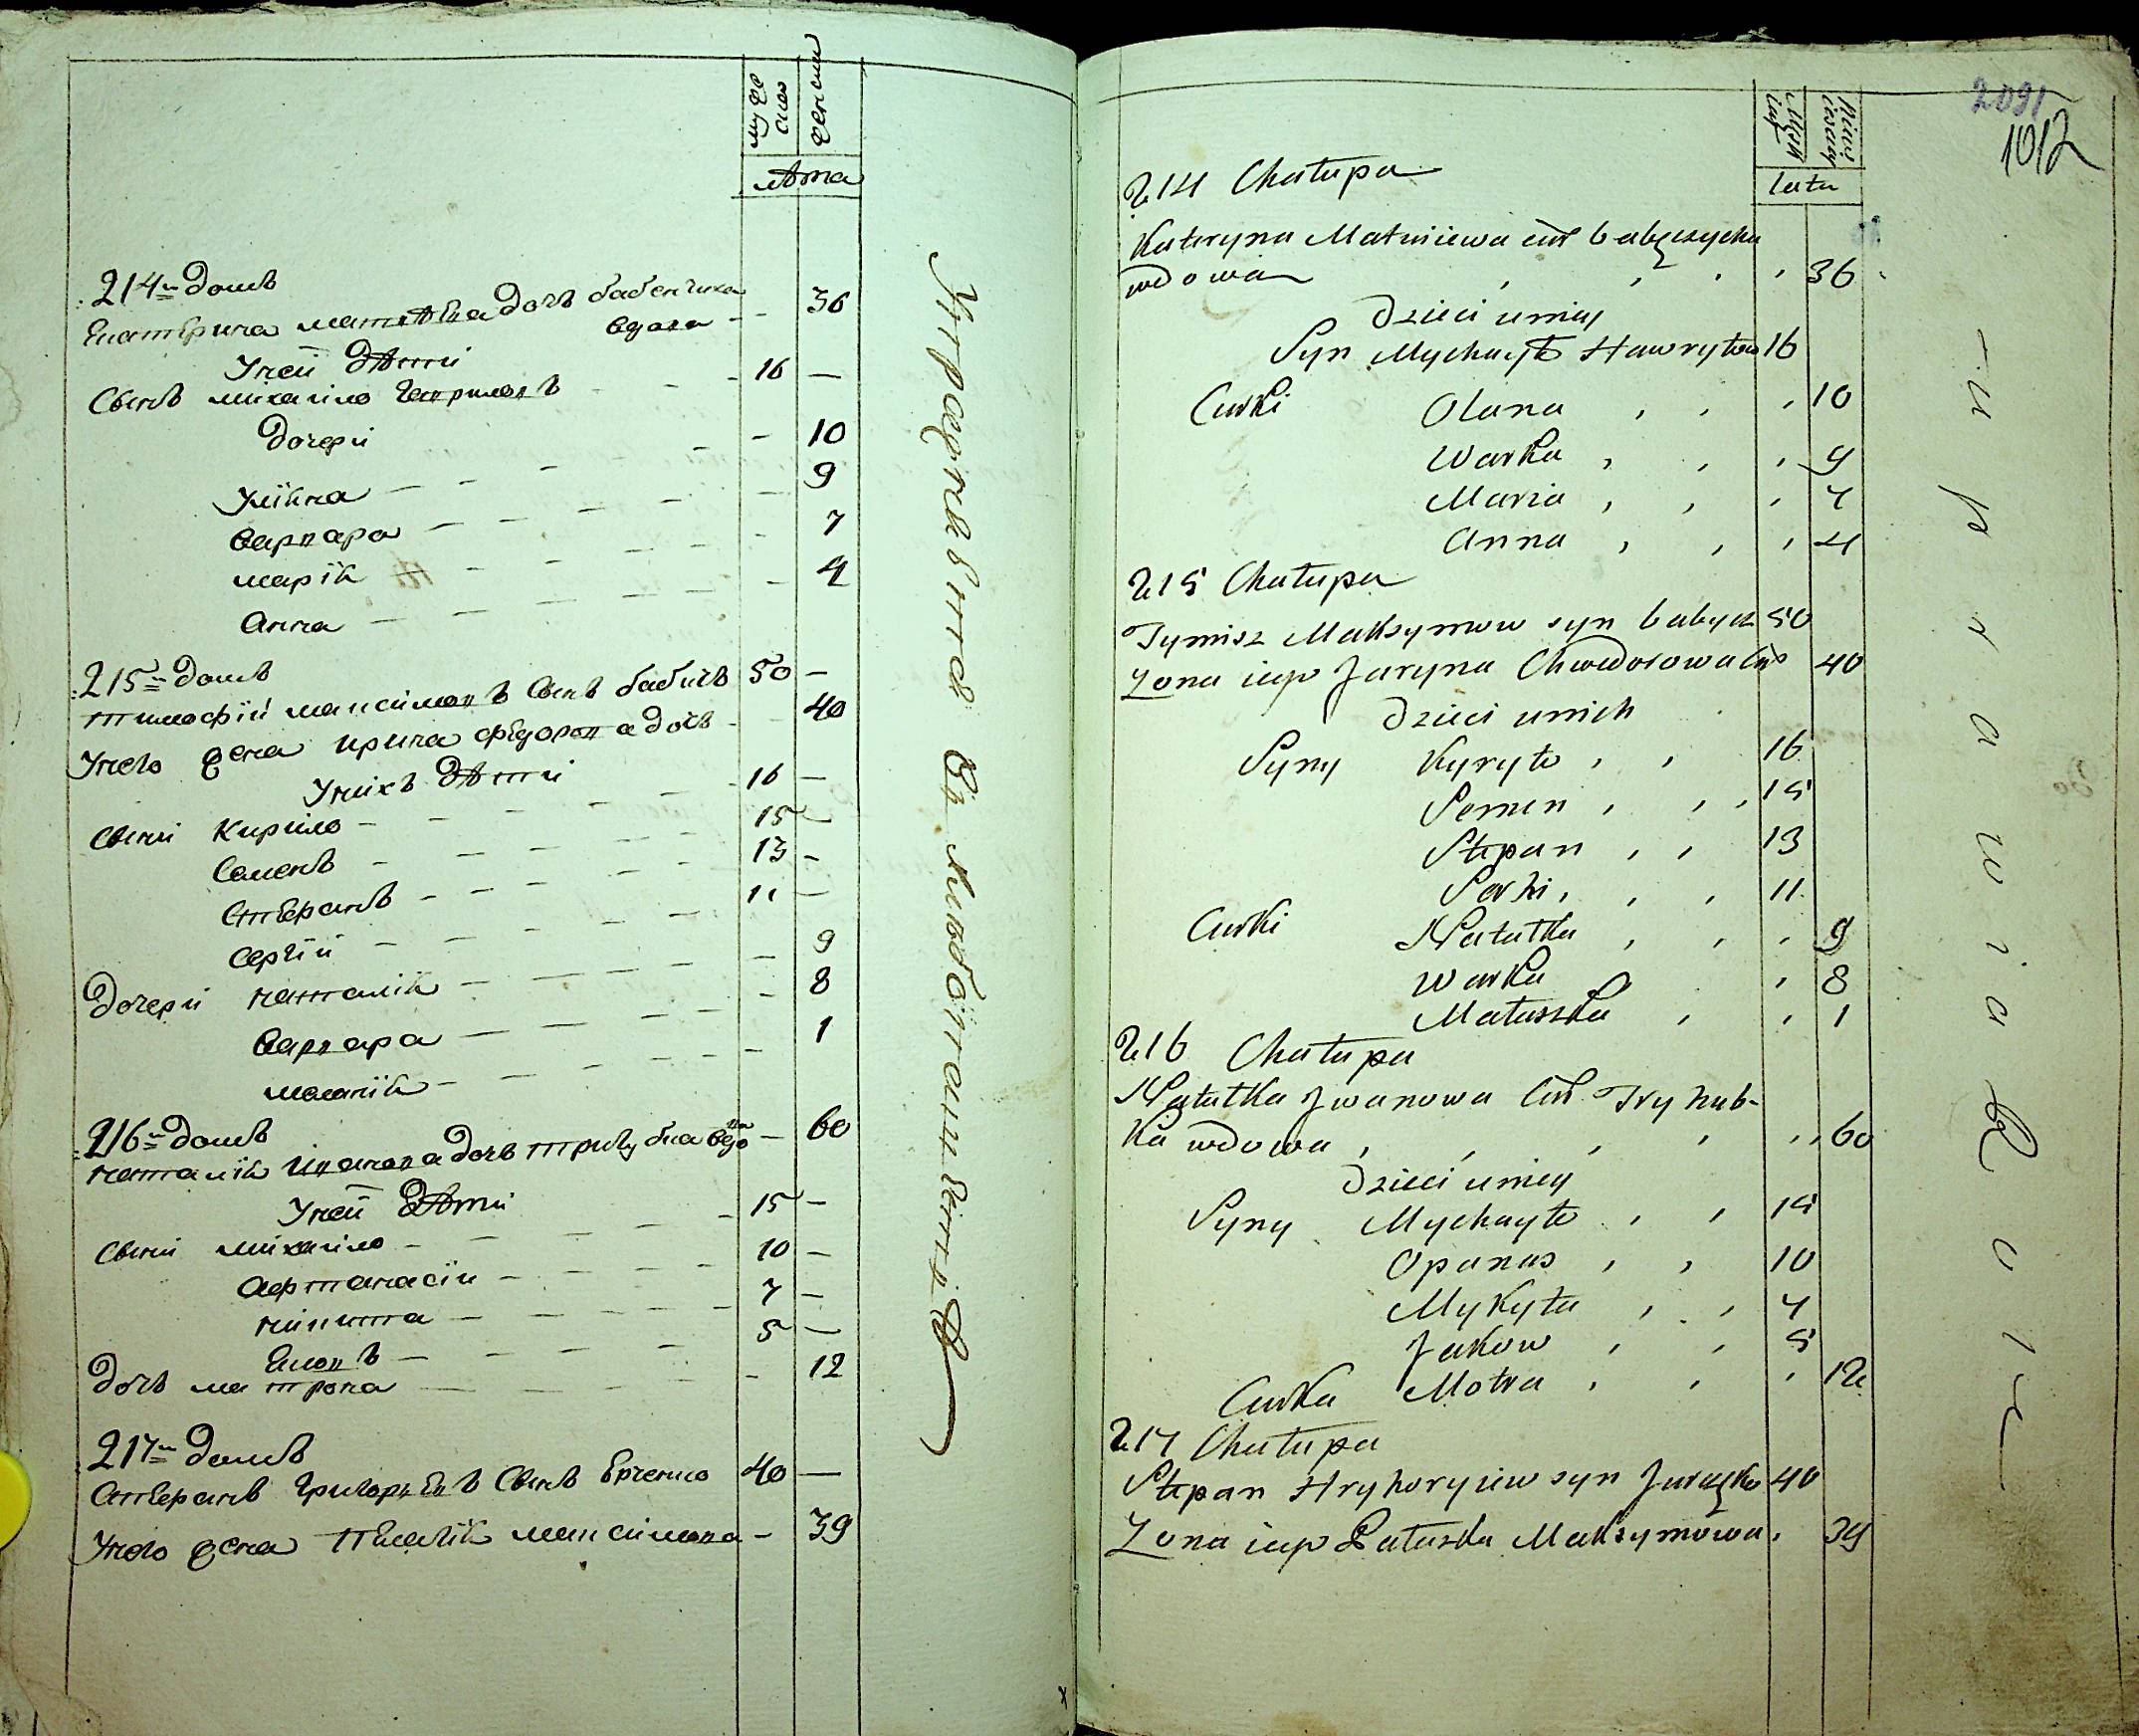 муже
ска
женска
лѣта
214й домъ
Екатерина матвѣева дочь бабенчиха
вдова - - 36
Унеи дѣти
Сынъ михаило Гавриловъ - - - 16 —
Дочери
Улiяна - - - 10
варвара - - - 9
марiя - - - 7
Анна - - - 4
215й домъ
тимофiй максимовъ Сынъ бабичъ 50 —
Унего жена ирина федорова дочь - 40
Унихъ дѣти
Сыни Кирило - - - 16 —
Семенъ - - - 15 —
Степанъ - - - 13 -
Сергiй - - - 11 —
Дочери наталiя - - - 9
варвара - - - 8
меланiя - - - 1
216й домъ
наталiя Иванова дочь тригубка вдова — 60
Унеи дѣти
Сыни михаило - - - 15 —
Афтанасiи - - - 10 —
никита - - - 7 —
Яковъ - - - 5 —
Дочь матрона - - - 12
217й домъ
Степанъ Григорьевъ Сынъ 40 —
Унего жена пелагiя максимова - 39
2091
1012
lata
214 Chałupa
Kateryna Matwiiewa cur babczycha
wdowa , , , , 36
Dzieci uniey
Syn Mychayło Hawryłow 16
Curki Olana , , , 10
Warka , , , 9
Maria , , , 7
Anna , , , 4
215 Chałupa
Tymisz Maksymow syn babycz 50
Zona iego Jaryna Chwedorowa Cur 40
Dzieci unich
Syny Kyryło , , 16
Semen , , , 15
Stepan , , 13
Serhi , , , 11
Curki Natałka , , , 9
Warka , 8
Małaszka , , 1
216 Chałupa
Natałka Jwanowa Cur Tryhub-
ka wdowa , , , , , , 60
Dzieci uniey
Syny Mychayło , , 15
Opanas , , 10
Mykyta , , 7
Jakow , , 5
Curka Motra , , , 12
217 Chałupa
Stepan Hryhoryiew syn 40
Zona iego Pałaszka Maksymowa , 39